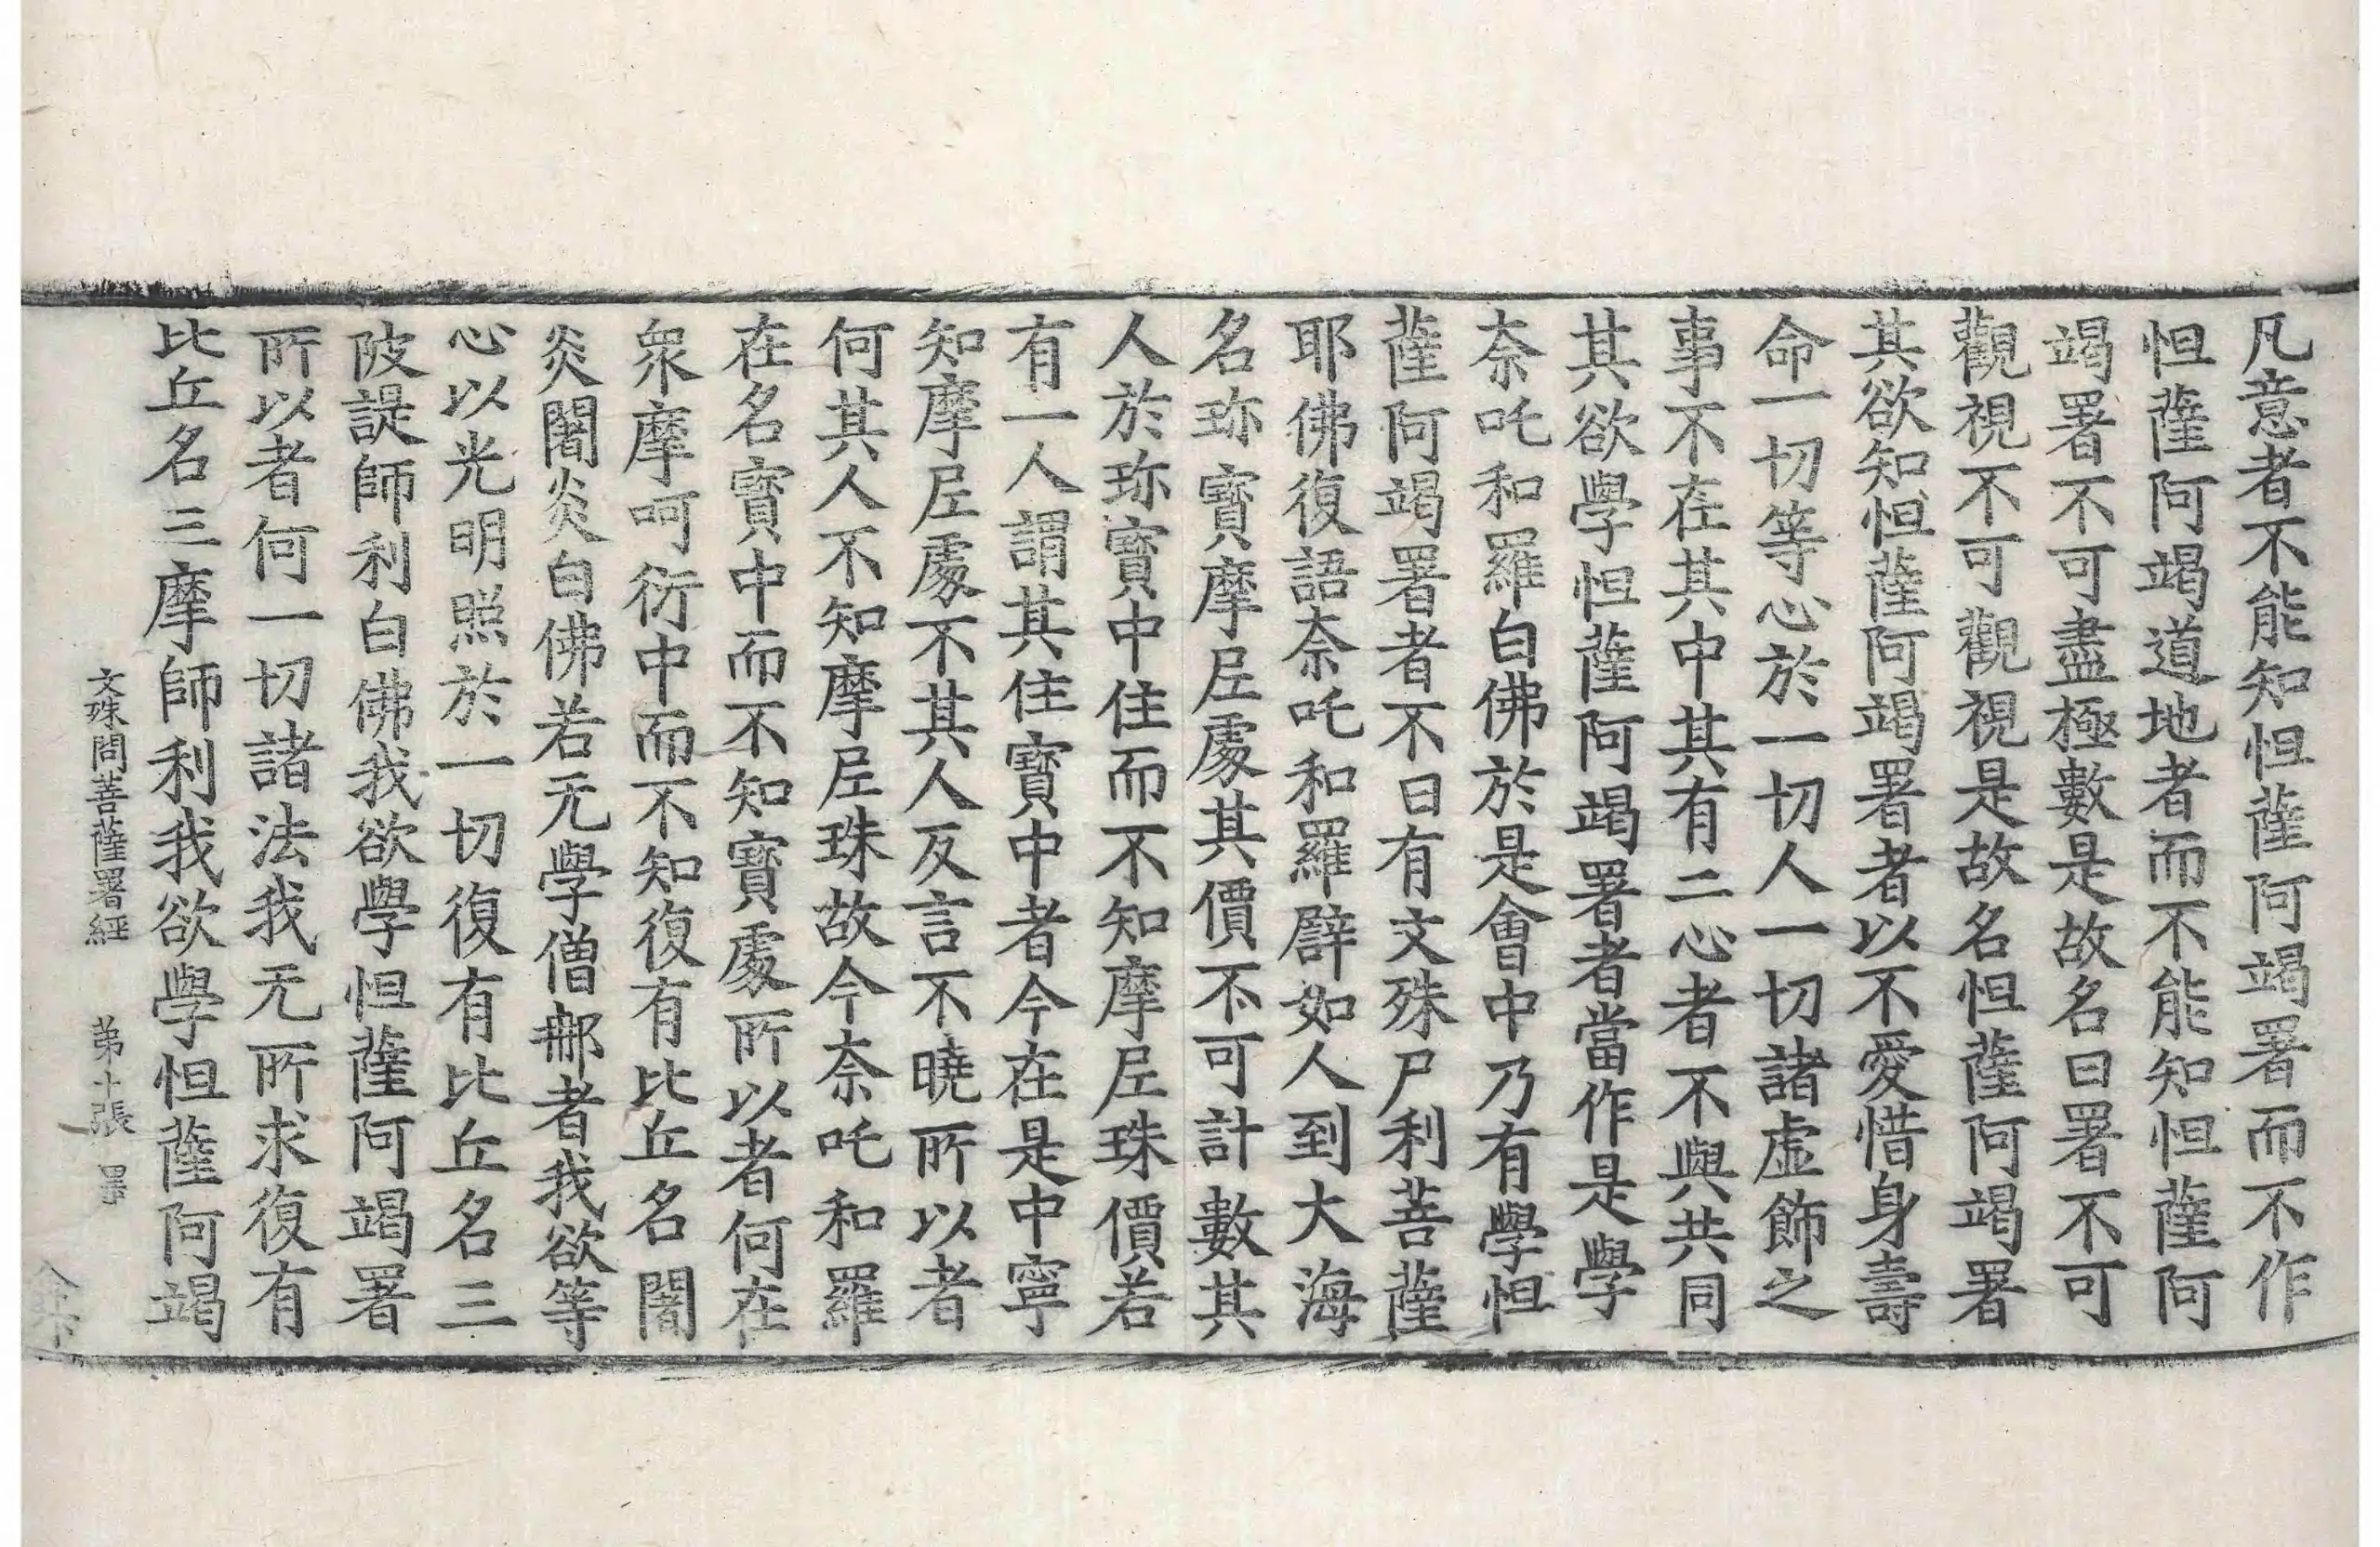 凡意者不能知怛薩阿竭署而不作
怛薩阿竭道地者而不能知怛薩阿
竭署不可盡極數是故名曰署不可
觀視不可觀視是故名怛薩阿竭署
其欲知怛薩阿竭署者以不愛惜身壽
命一切等心於一切人一切諸虛飾之
事不在其中其有二心者不與共同
其欲學怛薩阿竭署者當作是學
奈吒和羅白佛於是會中乃有學怛
薩阿竭署者不曰有文殊尸利菩薩
耶佛復語奈吒和羅辟如人到大海
名珎寶摩尼處其價不可計數其
人於珎寶中住而不知摩尼珠價若
有一人謂其住寶中者今在是中寧
知摩尼處不其人反言不曉所以者
何其人不知摩尼珠故今奈吒和羅
在名寶中而不知寶處所以者何在
衆摩呵衍中而不知復有比丘名闍
炎闍炎白佛若无學僧那者我欲等
心以光明照於一切復有比丘名三
陂諟師利白佛我欲學怛薩阿竭署
所以者何一切諸法我无所求復有
比丘名三摩師利我欲學怛薩阿竭
文殊問菩薩署經 第十張 罪